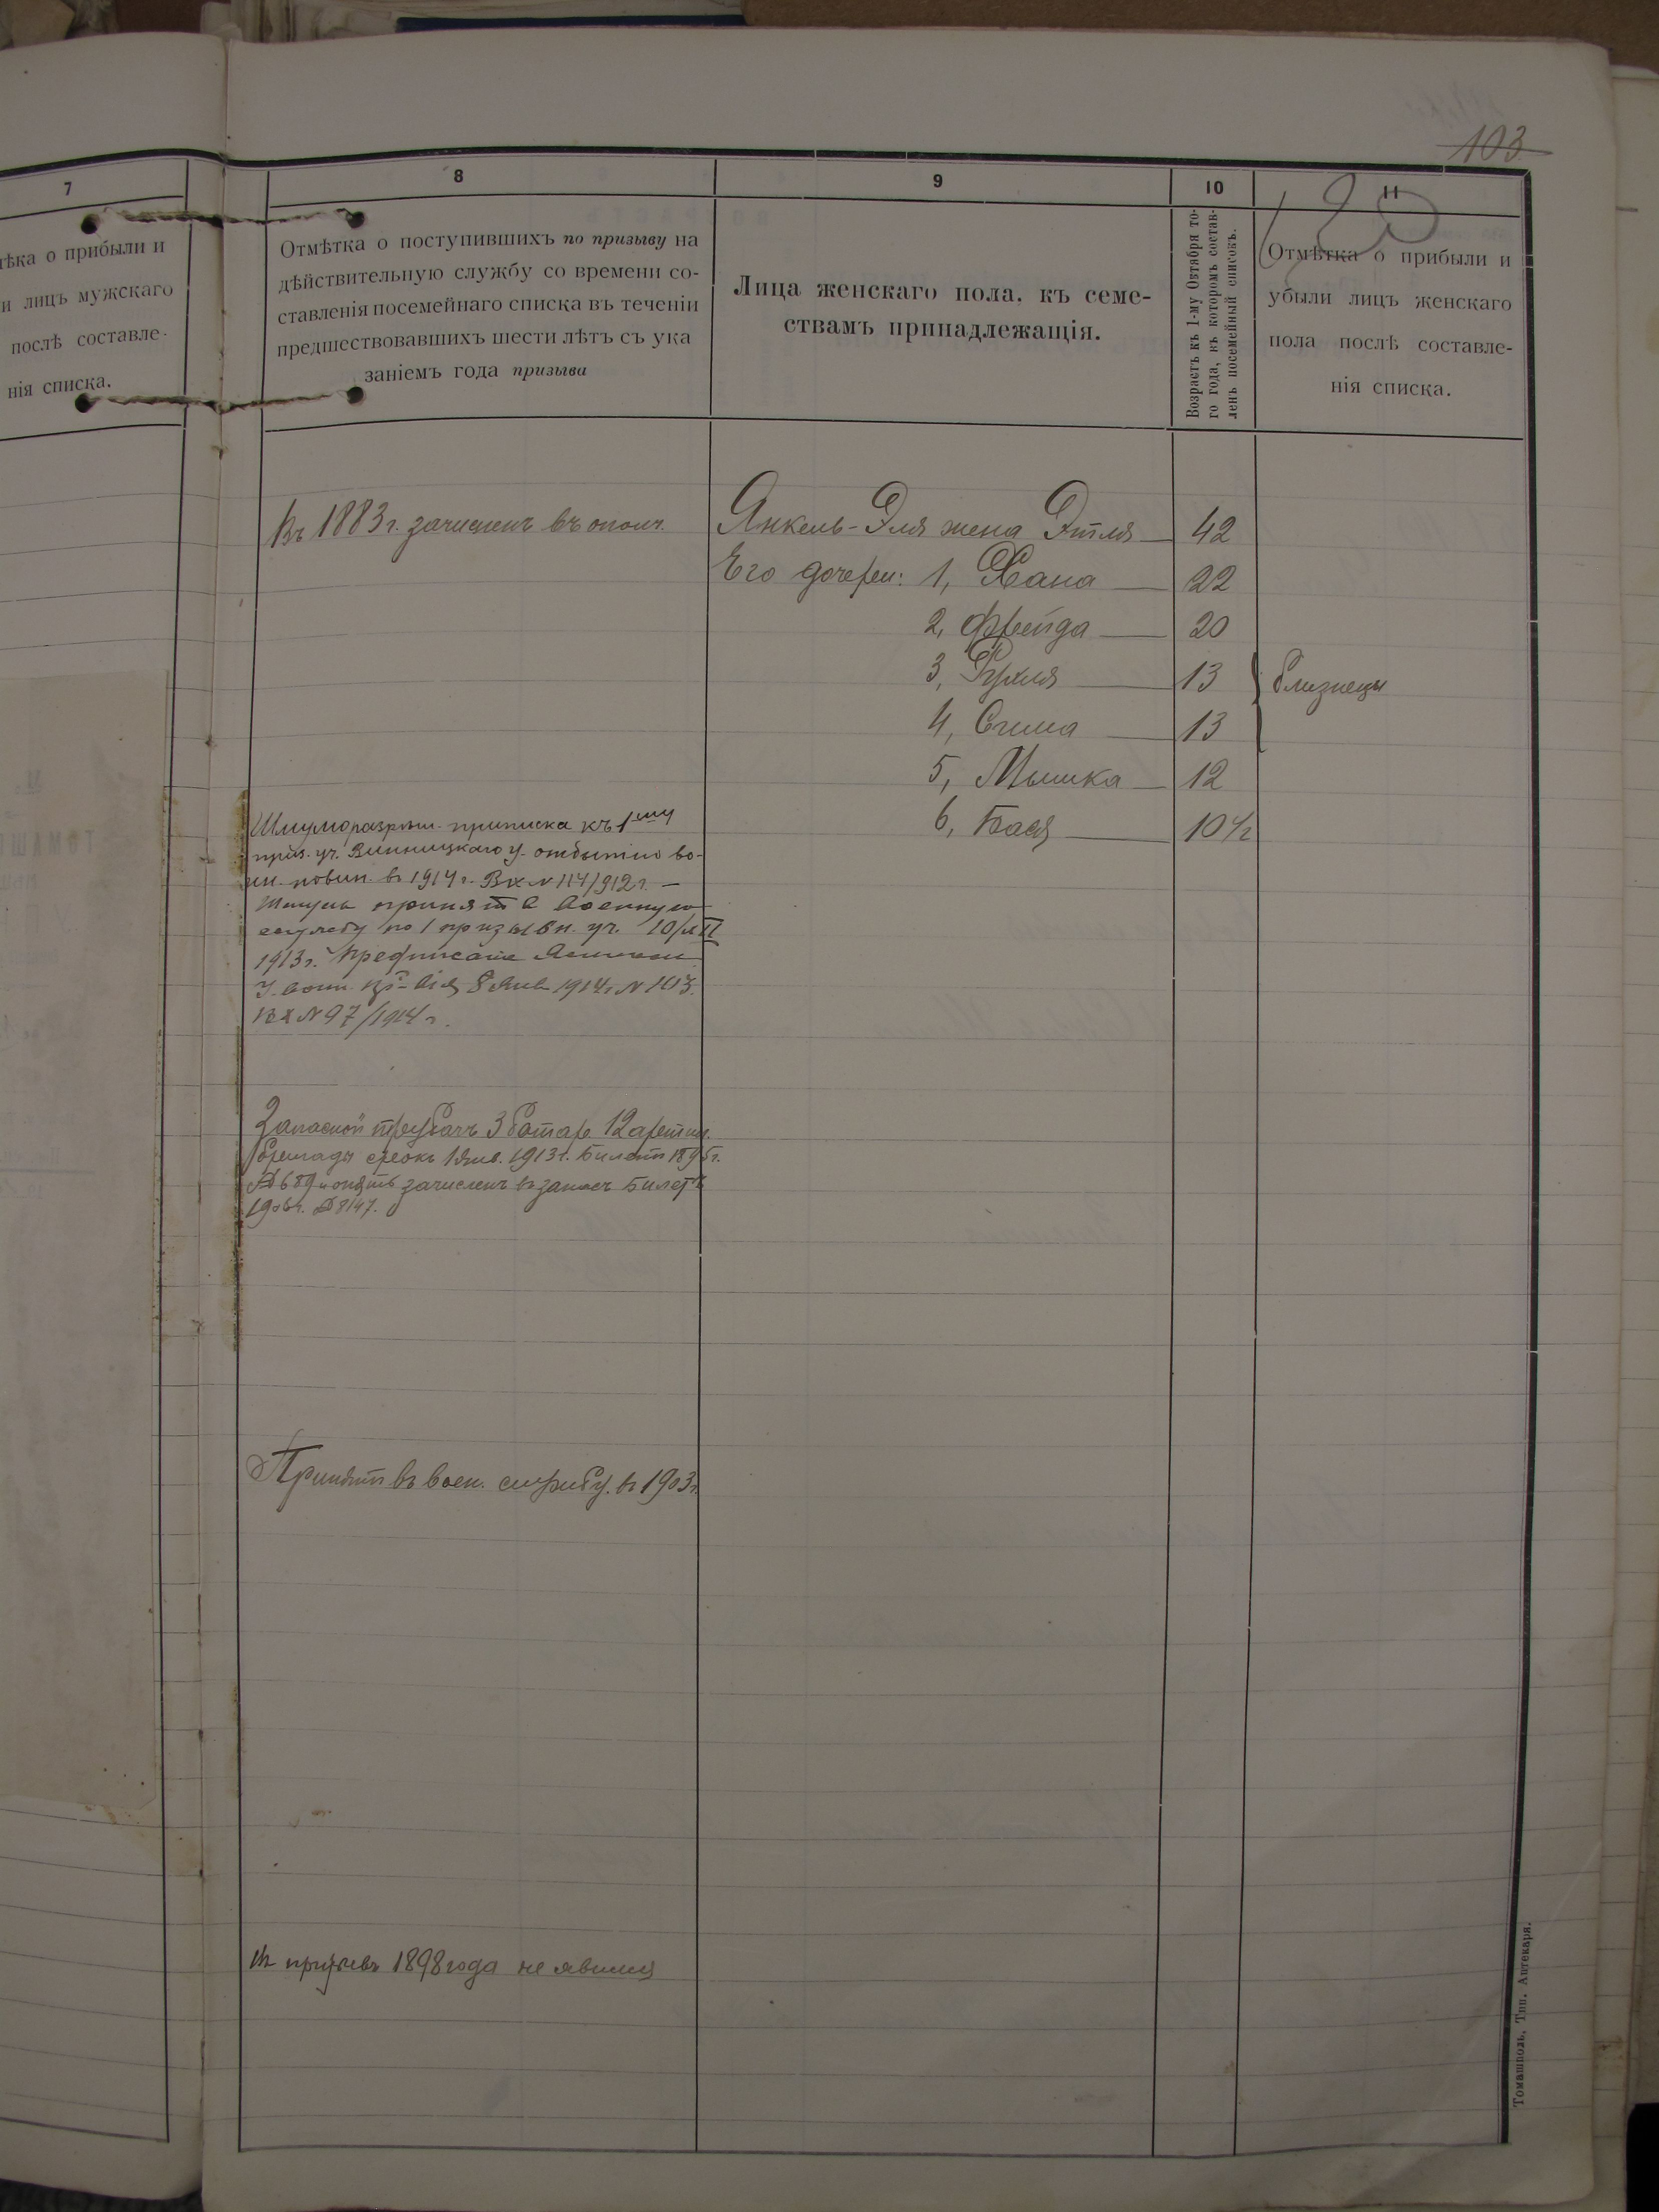 103
7
тѣка о прибыли и
и лицъ мужскаго
послѣ составле-
нія списка.
8
Отмѣтка о поступившихъ по призыву на
дѣйствительную службу со времени со-
ставленія посемейнаго списка въ теченіи
предшествовавшихъ шести лѣтъ съ ука
заніемъ года призыва
9
Лица женскаго пола, къ семе-
ствамъ принадлежащія.
10
Возрастъ къ 1-му Октября то-
го года, въ которомъ состав-
ленъ посемейный списокъ.
11
Отмѣтка о прибыли и
убыли лицъ женскаго
пола послѣ составле-
нія списка.
Въ 1883 г. зачисленъ въ ополч.
Янкель-Эля жена Этля 42
Его дочери: 1, Хана 22
2, Фрейда 20
3, Рухля 13 близнецы
4, Сима 13
5, Мышка 12
6, Бася 10 1/2
приписка къ 1му
приз. уч. Винницкаго у. отбытію во-
ин. повин. въ 1914 г. Вх N 114/912 г. —
Шмуль принятъ военную
службу по 1 призывн. уч.
1913 г. Предписаніе
8 Янв 1914 г N 103.
Вх N 97/1914 г.
Запасной трубачъ 3 батаре 12 артил.
бригады срокъ 1 Янв. 1913 г. Билетъ
№ 689 и опять зачисленъ въ запасъ Билетъ
№ 8147.
Принятъ въ воен. службу въ 1903 г.
Къ призыву 1898 года не явился
Томашполь, Тип. Аптекаря.